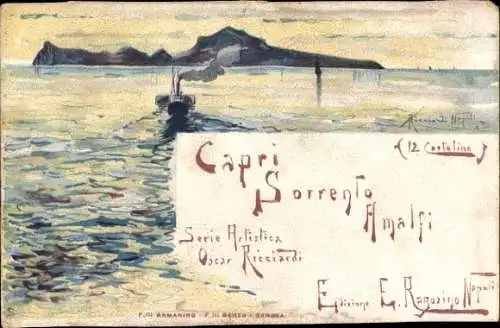 Ricciardi Napoli
(12 Cartoline)
Capri
Sorrento
Amalfi
Serie Artistica
Oscar Ricciardi
Edizione E. Ragozino
Napoli
F.lli ARMANINO - F. DI GENOVA